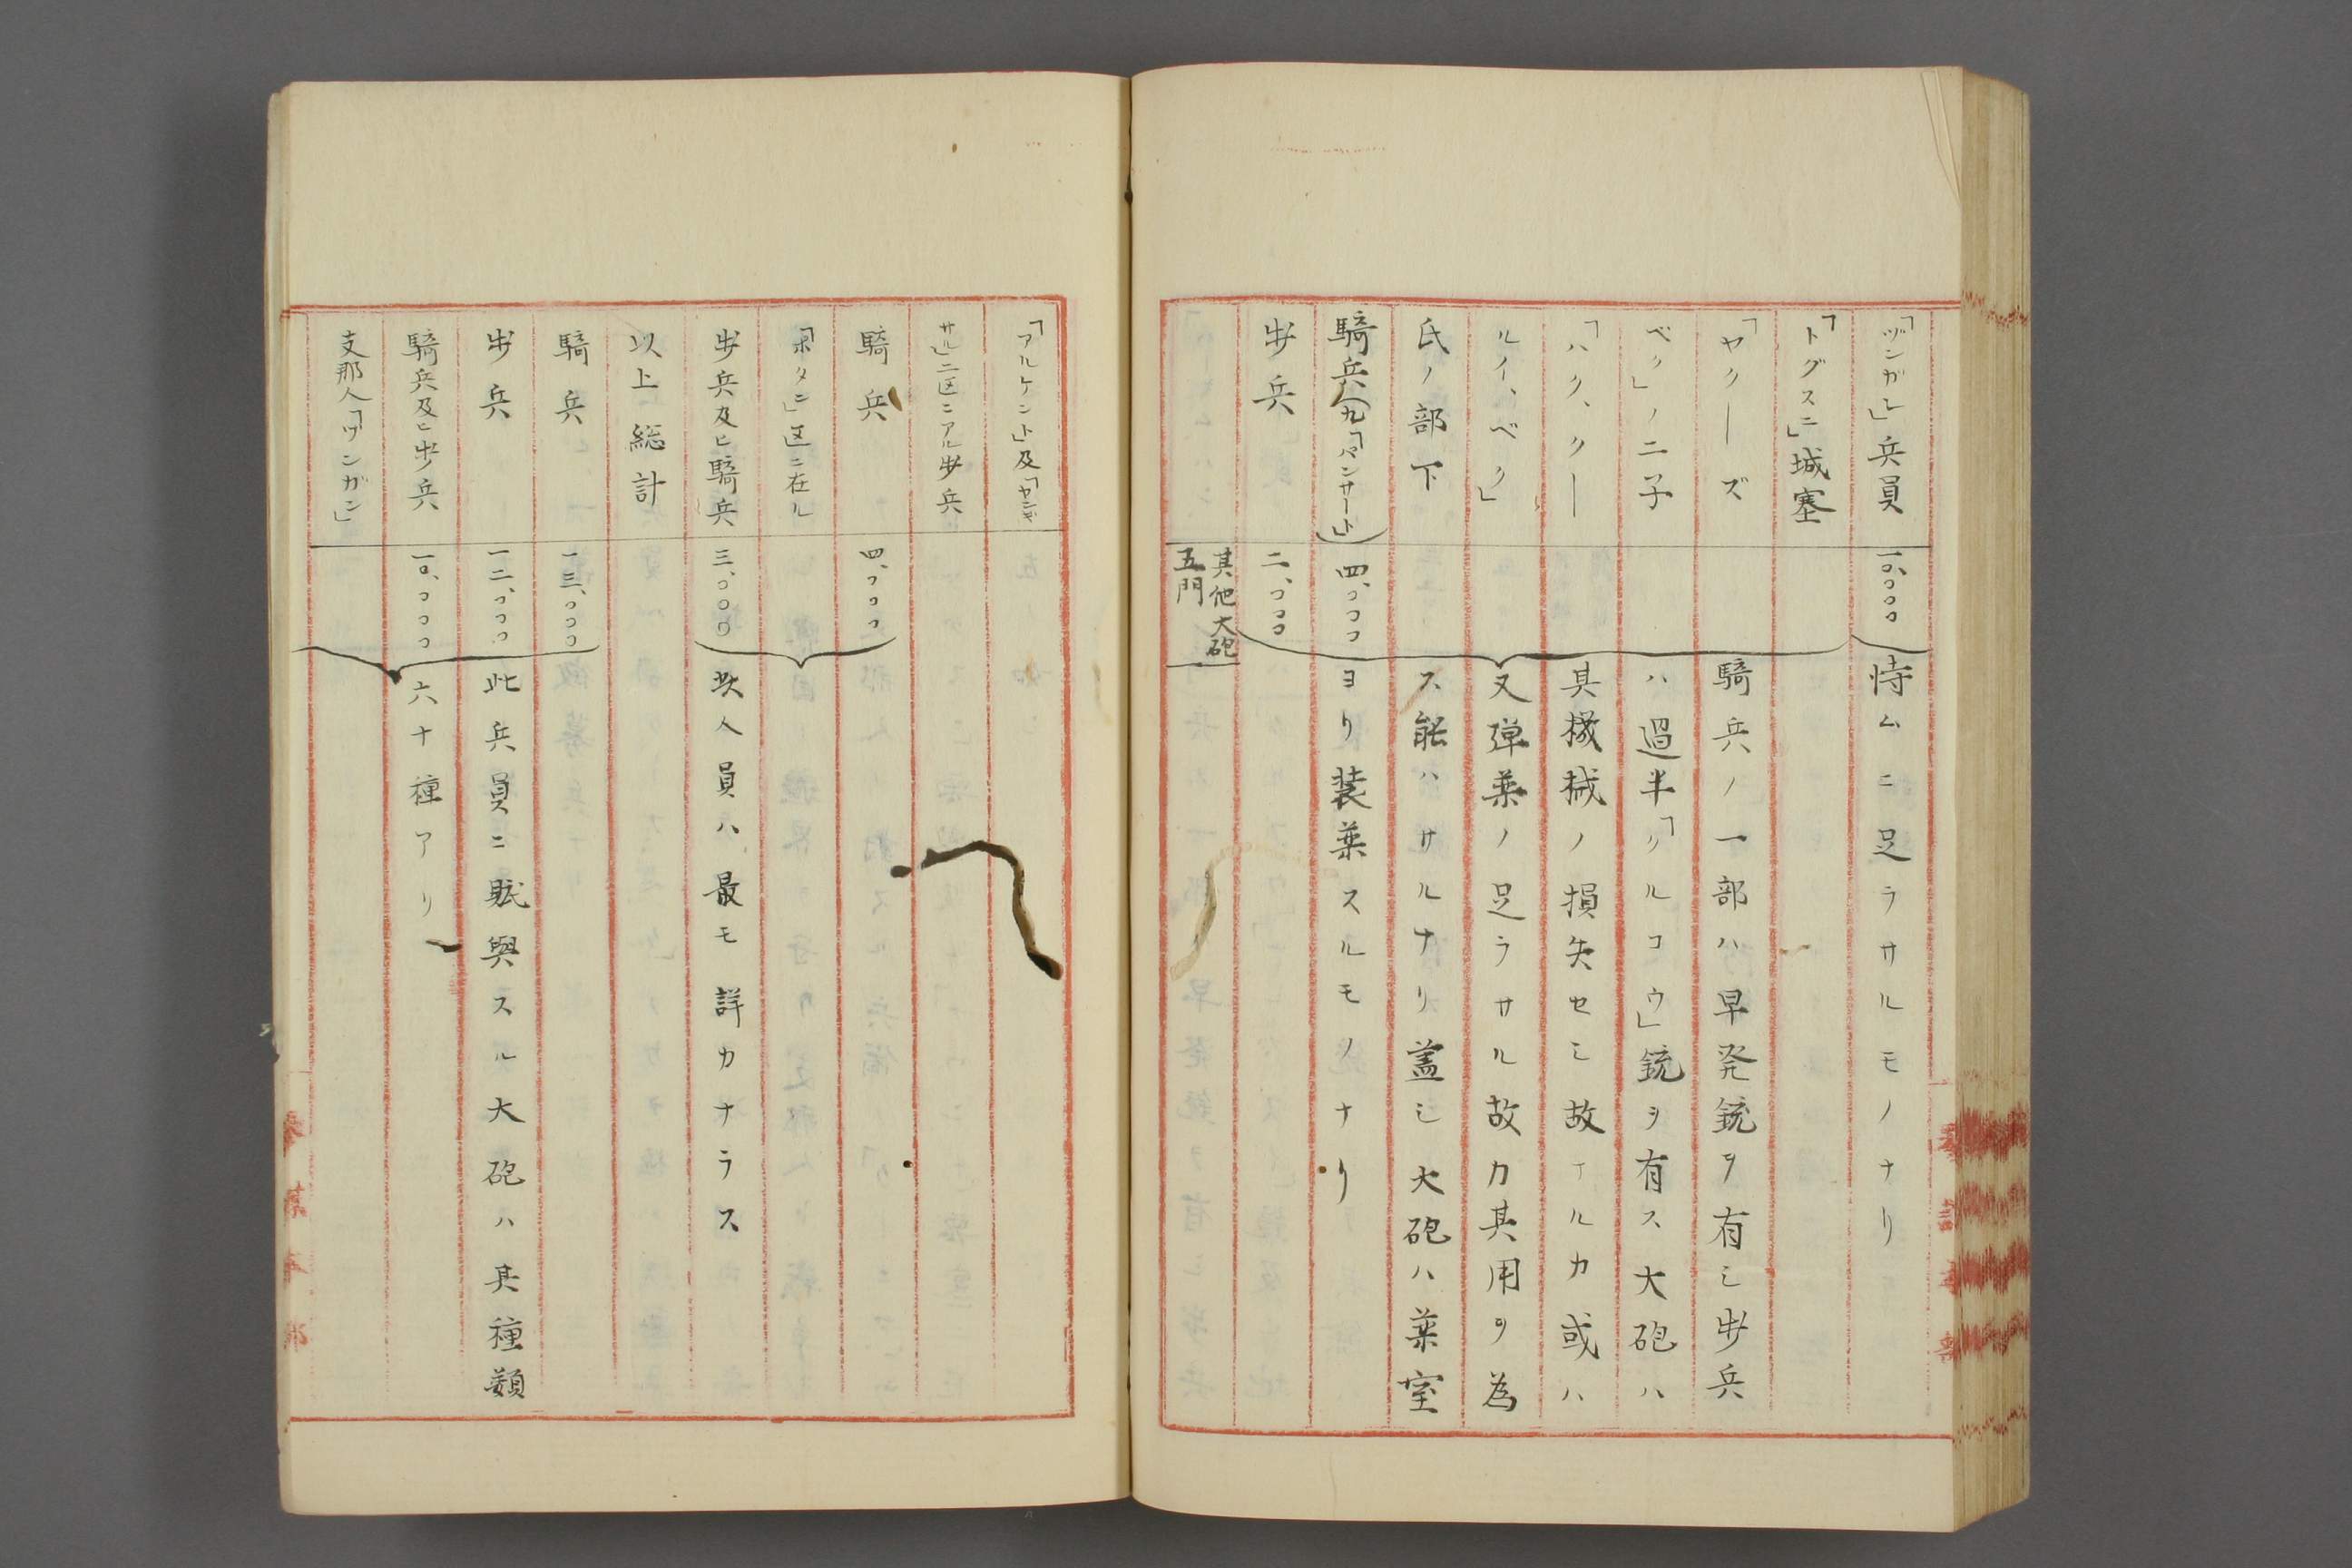 「ヅンガン」兵員 一〇、〇〇〇 恃ムニ足ラサルモノナリ
「トグスニ」城塞
「ヤクーズ 騎兵ノ一部ハ早発銃ヲ有シ歩兵
ベク」ノ二子 ハ過半「クルコウ」銃ヲ有ス大砲ハ
「ハク、クー 其機械ノ損失セシ故ナルカ或ハ
ルイ、ベク」 又弾薬ノ足ラサル故カ其用ヲ為
氏ノ部下 ス能ハサルナリ蓋シ大砲ハ薬室
騎兵 四、〇〇〇 ヨリ装薬スルモノナリ
歩兵 二、〇〇〇
其他大砲
五門
「アルケント」及「ヤンギ
サル」二区ニアル歩兵
騎兵 四、〇〇〇
「ホタン」区ニ在ル
歩兵及ヒ騎兵 三、〇〇〇 此人員ハ最モ詳カナラス
以上総計
騎兵 一三、〇〇〇
歩兵 一二、〇〇〇 此兵員ニ賦與スル大砲ハ其種類
騎兵及ヒ歩兵 一〇、〇〇〇 六十種アリ
支那人「ヅンガン」